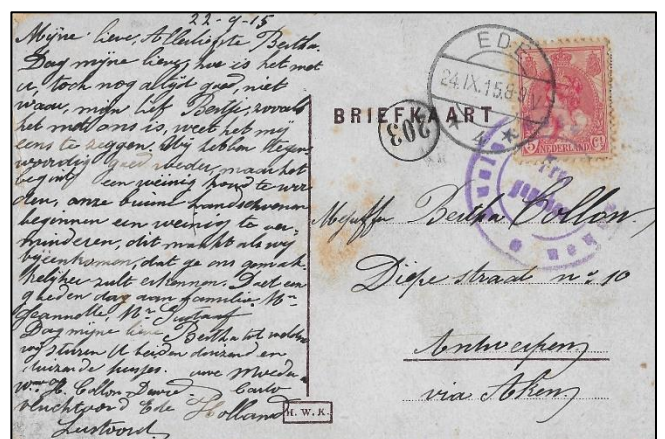 22-9-15
Mijne lieve, Allerliefste Bertha.
Dag mijne lieve, hoe is het met
u, toch nog altijd goed, niet
waar, mijn lief Bertje, zooals
het met ons is, weet het mij
eens te zeggen. Wij hebben tegen
woordig goed weder, maar het
begint een weinig koud te wor
den, onze bruine handschoenen
beginnen een weinig te ver-
minderen, dit maakt als wij
bijeenkomen, dat ge ons gemak-
kelijker zult erkennen. Doet een
goeden dag aan familie, Mr
Jeannette, Mr Gustaaf
Dag mijne lieve Bertha tot weder
wij sturen U beiden duizend en
duizende kusjes. uwe Moeder
Carlo
Wwe H. Collon-
vluchtoord Ede Holland
BRIEFKAART
203
EDE
24.IX.15.8-9V
4
5 NEDERLAND Ct
Mejuffr Bertha Collon
Diepe straat no 10
Antwerpen
via Aken
H. W. K.